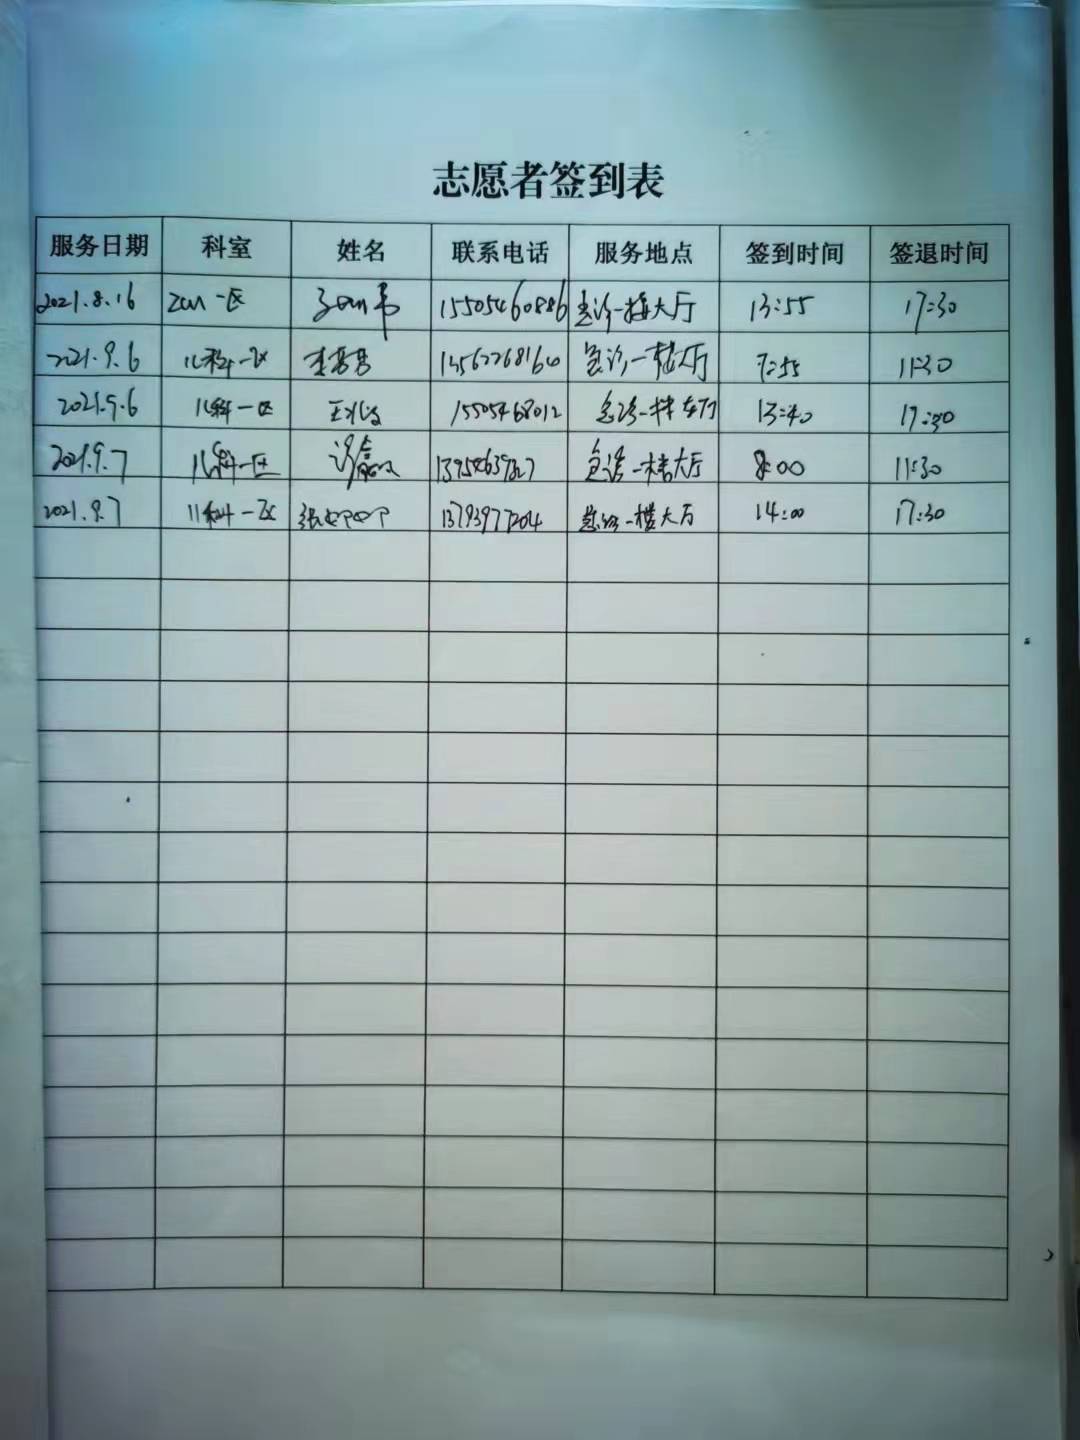 志愿者签到表
服务日期 科室 姓名 联系电话 服务地点 签到时间 签退时间
2021.8.16 一区 15505460886 急诊一楼大厅 13:55 17:30
2021.9.6 儿科一区 急诊一楼大厅 7:55 11:30
2021.9.6 儿科一区 15505468012 急诊一楼大厅 13:40 17:30
2021.9.7 儿科一区 急诊一楼大厅 8:00 11:30
2021.9.7 儿科一区 张 13793977204 急诊一楼大厅 14:00 17:30